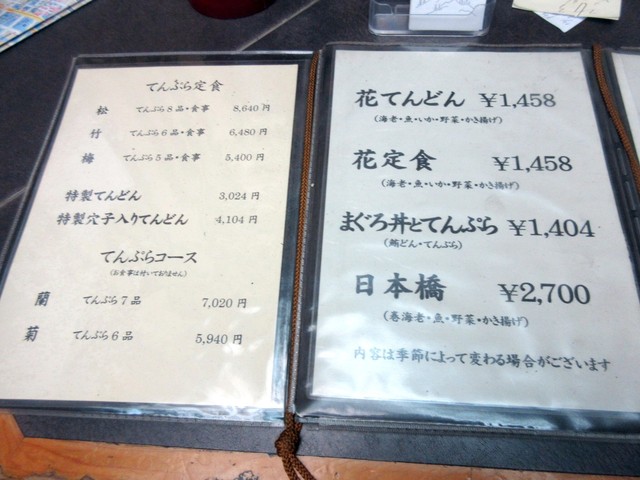 てんぷら定食
松 てんぷら8品・食事 8,640円
竹 てんぷら6品・食事 6,480円
梅 てんぷら5品・食事 5,400円
特製てんどん 3,024円
特製穴子入りてんどん 4,104円
てんぷらコース
(お食事は付いておりません)
蘭 てんぷら7品 7,020円
菊 てんぷら6品 5,940円
花てんどん ¥1,458
(海老・魚・いか・野菜・かき揚げ)
花定食 ¥1,458
(海老・魚・いか・野菜・かき揚げ)
まぐろ丼とてんぷら ¥1,404
(鮪どん・てんぷら)
日本橋 ¥2,700
(巻海老・魚・野菜・かき揚げ)
内容は季節によって変わる場合がございます